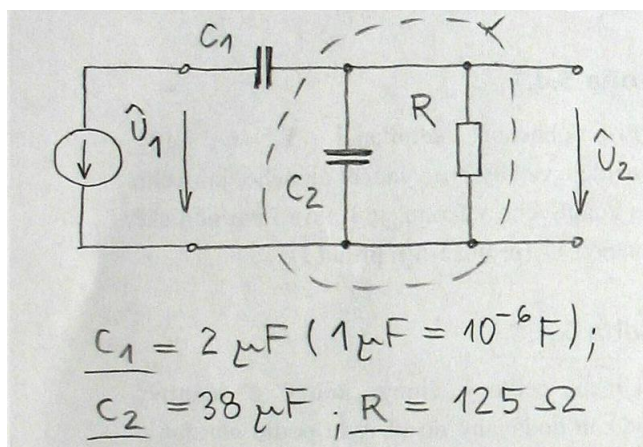 C₁
Û₁
C₂
R
Û₂
C₁ = 2 μF (1 μF = 10⁻⁶ F);
C₂ = 38 μF ; R = 125 Ω